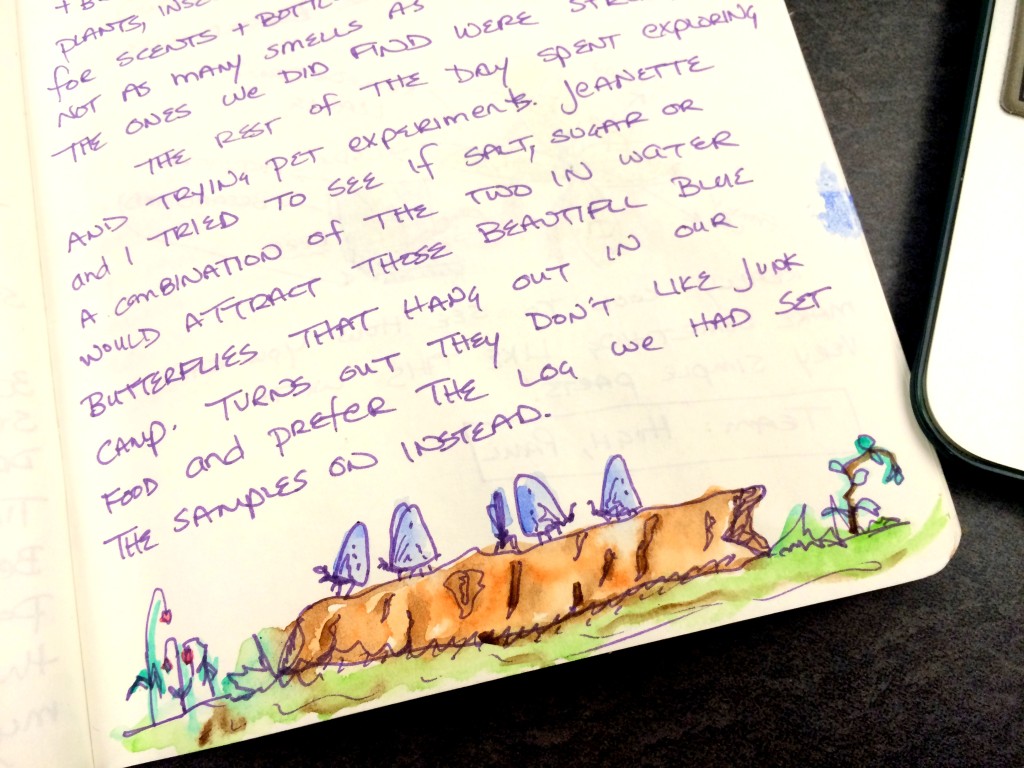 PLANTS,
for SCENTS + BOTTL
NOT AS MANY SMELLS AS
THE ONES we DID FIND WERE
THE REST OF THE DAY SPENT exploring
AND TRYING PET experiments. JEANETTE
and I TRIED TO SEE IF SALT, SUGAR OR
A COMBINATION OF THE TWO IN WATER
WOULD ATTRACT THOSE BEAUTIFUL BLUE
BUTTERFLIES THAT HANG OUT IN OUR
CAMP. TURNS OUT THEY DON'T LIKE JUNK
FOOD and prefer THE LOG we HAD SET
THE SAMPLES ON INSTEAD.